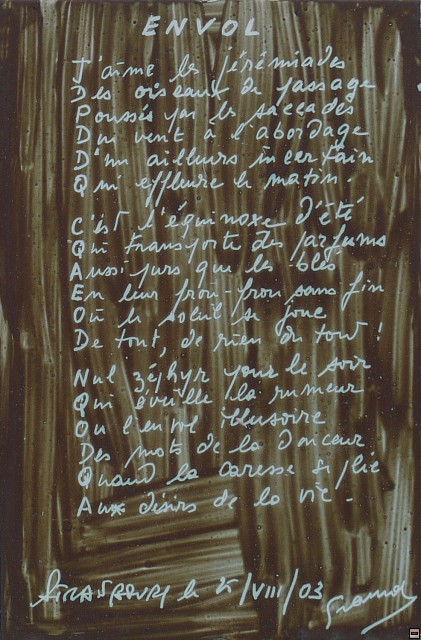 ENVOL
J'aime les jérémiades
Des oiseaux de passage
Poussés par les saccades
Du vent à l'abordage
D'un ailleurs incertain
Qui effleure le matin.
C'est l'équinoxe d'été
Qui transporte des parfums
Aussi purs que les blés
En leur frou-frou sans fin
Où le soleil se joue
De tout, de rien du tout !
Nul zéphyr pour le soir
Qui éveille la rumeur
Ou l'envol illusoire
Des mots de la douceur
Quand la caresse se plie
Aux désirs de la vie.
STRASBOURG le /VIII/03